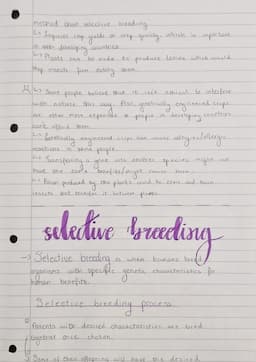 method than selective breeding
↳ Improves crop yields or crop quality, which is important
in developing countries
↳ Plants can be made to produce toxins which would
stop insects from eating them
↳ Some people believe that it isn't ethical to interfere
with nature this way. Also, genetically engineered crops
are often more expensive & people in developing countries
can't afford them.
↳ Genetically engineered crops can cause allergies/allergic
reactions in some people.
↳ Transferring a gene into another species might not
have the same benefits/might cause harm
↳ Pollen produced by the plants could be toxic and harm
insects that transfer it between plants.
selective breeding
→ Selective breeding is when humans breed
organisms with specific genetic characteristics for
human benefits.
Selective breeding process
Parents with desired characteristics are bred
together once chosen.
Some of their offspring will have the desired